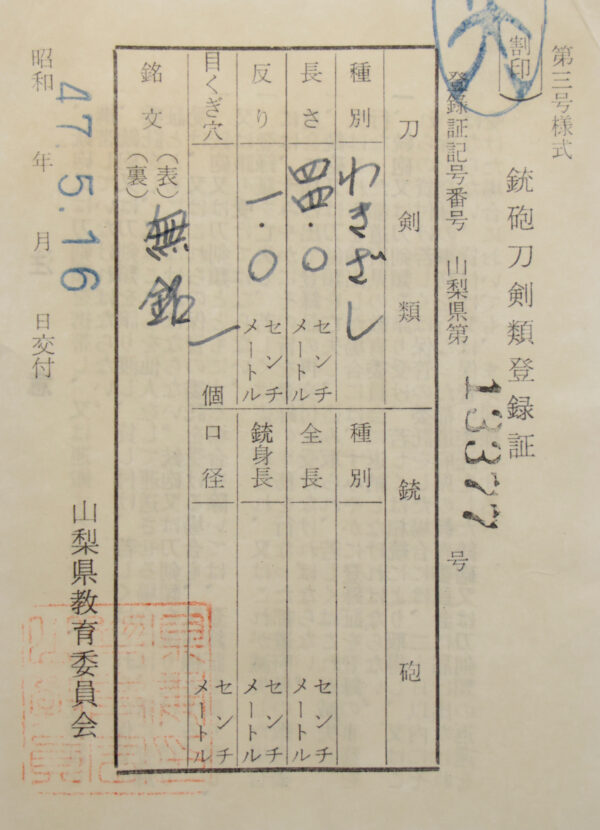 第三号様式
(割印)
銃砲刀剣類登録証
登録証記号番号 山梨県第 13377 号
刀剣類
種別 わきざし
長さ 四四.〇 センチメートル
反り 一.〇 センチメートル
目くぎ穴 一 個
銘文 (表) (裏) 無銘
銃砲
種別
全長 センチメートル
銃身長 センチメートル
口径 センチメートル
昭和 47.5.16 年 月 日交付
山梨県教育委員会